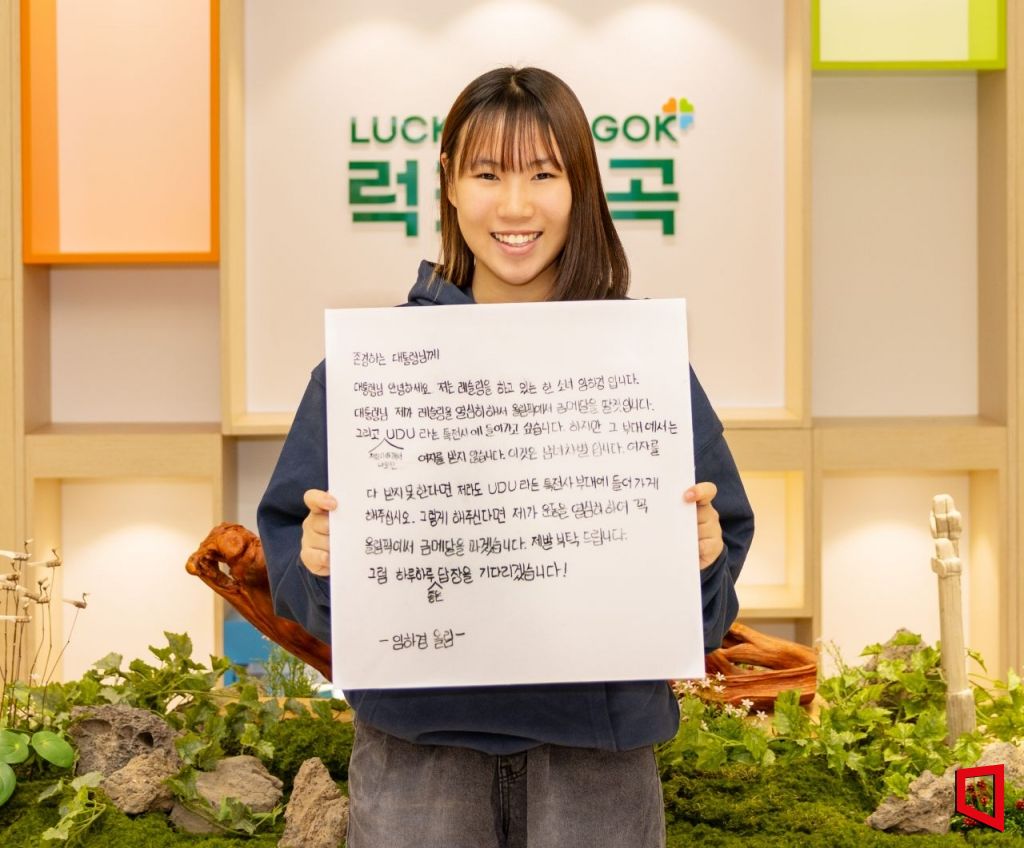 LUCK GOK
럭 곡
존경하는 대통령님께
대통령님 안녕하세요. 저는 레슬링을 하고 있는 한 소녀 임하경 입니다.
대통령님 제가 레슬링을 열심히해서 올림픽에서 금메달을 딸것입니다.
그리고 UDU 라는 특전사에 들어가고 싶습니다. 하지만 그 부대에서는
여자를 받지 않습니다. 이것은 남녀차별 입니다. 여자를
다 받지 못한다면 저라도 UDU 라는 특전사 부대에 들어가게
해주십시오. 그렇게 해주신다면 제가 운동을 열심히 하여 꼭
올림픽에서 금메달을 따겠습니다. 제발 부탁 드립니다.
그럼 하루하루 답장을 기다리겠습니다!
좋은
- 임하경 올림 -